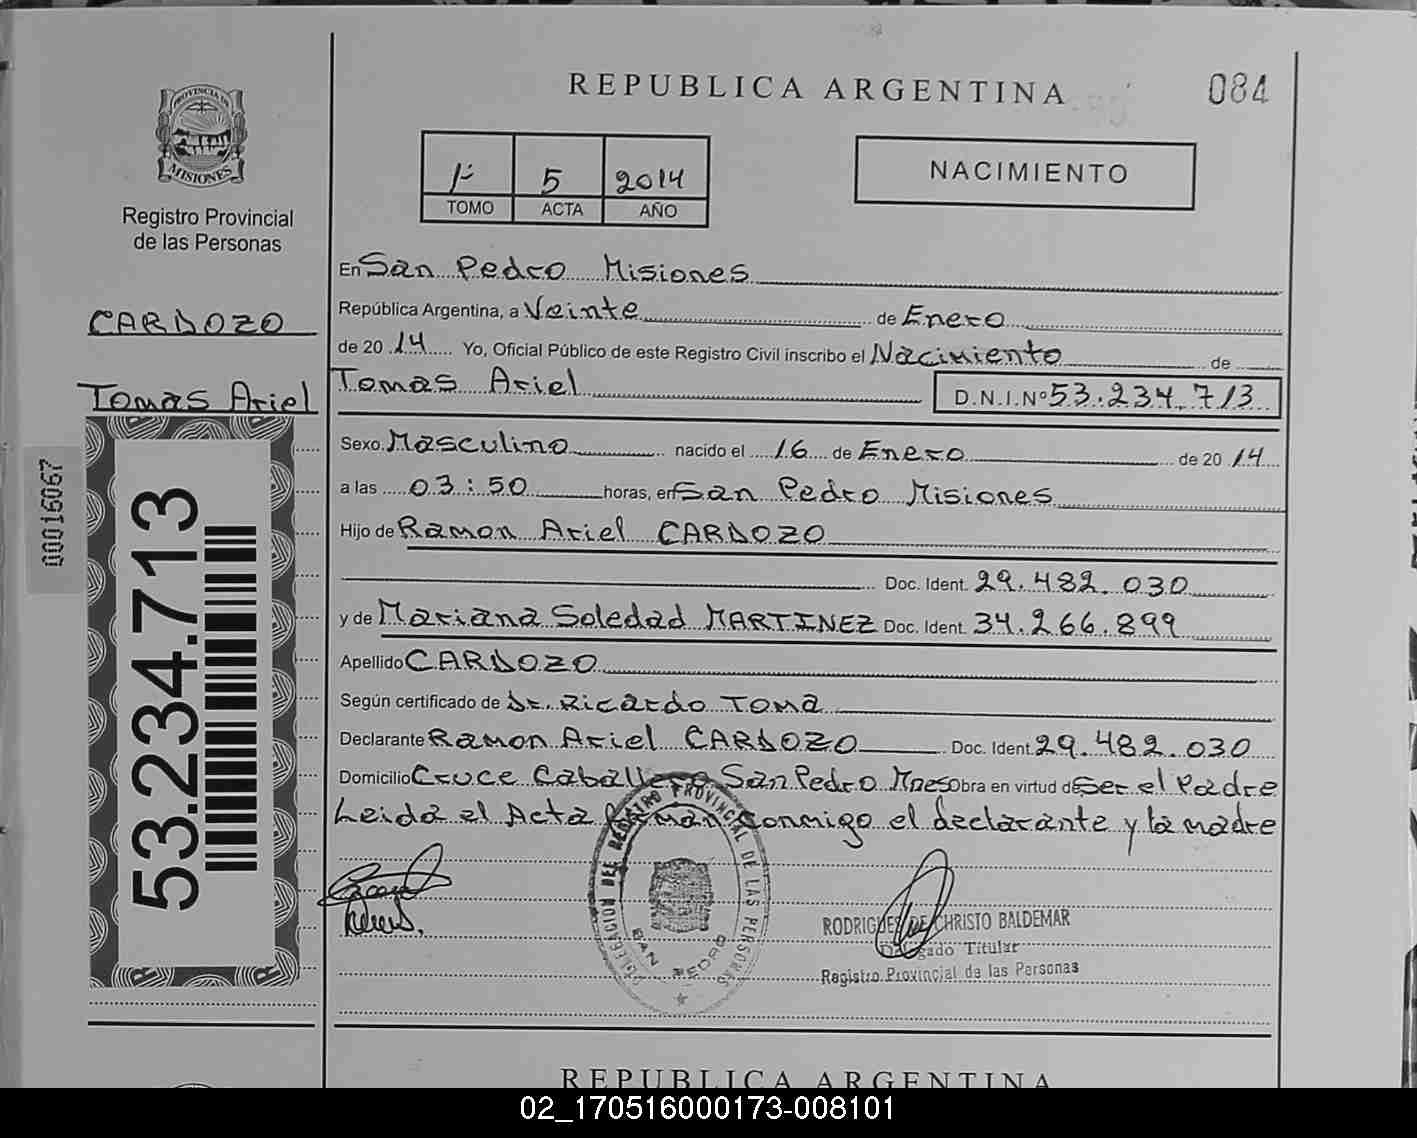 REPUBLICA ARGENTINA
084
PROVINCIA DE
MISIONES
Registro Provincial
de las Personas
1º 5 2014
TOMO ACTA AÑO
NACIMIENTO
En San Pedro Misiones
República Argentina, a Veinte de Enero
de 20 14 Yo, Oficial Público de este Registro Civil inscribo el Nacimiento de
Tomas Ariel D.N.I.Nº 53.234.713
CARDOZO
Tomas Ariel
00016067
53.234.713
Sexo Masculino nacido el 16 de Enero de 20 14
a las 03:50 horas, en San Pedro Misiones
Hijo de Ramon Ariel CARDOZO
Doc. Ident. 29.482.030
y de Mariana Soledad MARTINEZ Doc. Ident. 34.266.899
Apellido CARDOZO
Según certificado de Dr. Ricardo Toma
Declarante Ramon Ariel CARDOZO Doc. Ident. 29.482.030
Domicilio Cruce Caballero San Pedro Mnes Obra en virtud de Ser el Padre
Leida el Acta firman conmigo el declarante y la madre
DELEGACION DEL REGISTRO PROVINCIAL DE LAS PERSONAS
SAN PEDRO
RODRIGUEZ DE CHRISTO BALDEMAR
Delegado Titular
Registro Provincial de las Personas
REPUBLICA ARGENTINA
02_170516000173-008101